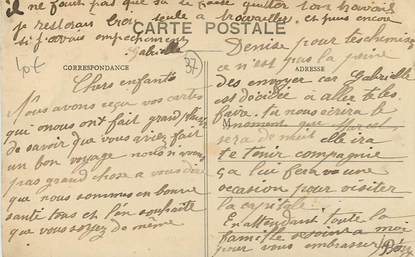 il ne faut pas que tu te fasse quitter ton travail
je resterais trop seule a travailler, et plus encore
si j'avais empechement
Gabrielle
CARTE POSTALE
CORRESPONDANCE
ADRESSE
37
Chers enfants
Nous avons reçu vos cartes
qui nous ont fait grand plaisir
de savoir que vous aviez fait
un bon voyage nous n'avons
pas grand chose a vous dire
que nous sommes en bonne
santé tous et l'on souhaite
que vous soyez de même
Denise pour tes chemises
ce n'est pas la peine
des envoyer car Gabrielle
est décidée a aller te les
faire, tu nous écrira le
moment que
sera de nuit elle ira
te tenir compagnie
ça lui fera une
occasion pour visiter
la capitale
En attendant toute la
famille
pour vous embrasser